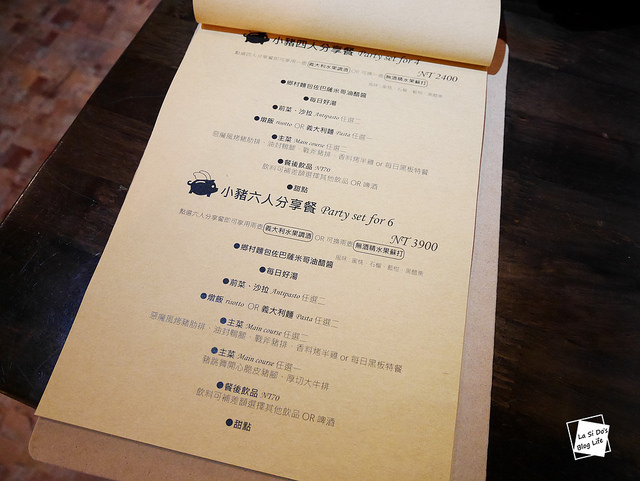 小豬四人分享餐 Party set for 4
NT 2400
點選四人分享餐即可享用一壺 義大利水果調酒 OR 可換一壺 無酒精水果蘇打
●鄉村麵包佐巴薩米哥油醋醬
●每日好湯
●前菜、沙拉 Antipasto 任選二
●燉飯 risotto OR 義大利麵 Pasta 任選一
●主菜 Main course 任選二
惡魔風烤豬肋排、油封鴨腿、戰斧豬排、香料烤半雞 or 每日黑板特餐
●餐後飲品 NT70
飲料可補差額選擇其他飲品 OR 啤酒
●甜點
小豬六人分享餐 Party set for 6
NT 3900
點選六人分享餐即可享用兩壺 義大利水果調酒 OR 可換兩壺 無酒精水果蘇打
●鄉村麵包佐巴薩米哥油醋醬
●每日好湯
●前菜、沙拉 Antipasto 任選二
●燉飯 risotto OR 義大利麵 Pasta 任選二
●主菜 Main course 任選二
惡魔風烤豬肋排、油封鴨腿、戰斧豬排、香料烤半雞 or 每日黑板特餐
●主菜 Main course 任選一
豬跳舞開心脆皮豬腳、厚切大牛排
●餐後飲品 NT70
飲料可補差額選擇其他飲品 OR 啤酒
●甜點
La Si Do's
Blog Life